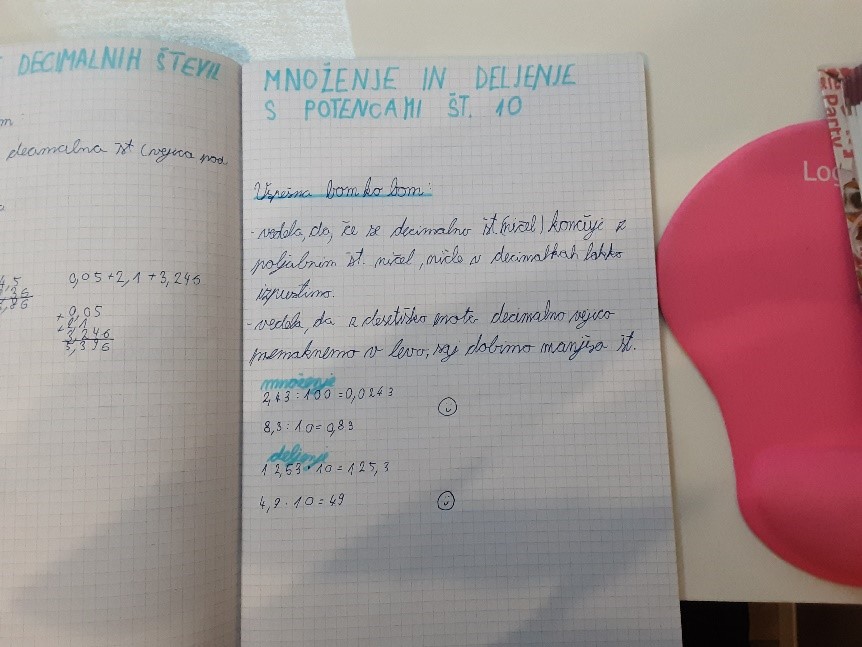 DECIMALNIH ŠTEVIL
decimalna št (vejica pod
0,05+2,1+3,246
+ 0,05
+ 2,1
3,246
5,396
MNOŽENJE IN DELJENJE
S POTENCAMI ŠT. 10
Uspešna bom ko bom:
- vedela, da, če se decimalno št. (ničel) končuje z
poljubnim št. ničel, ničle v decimalkah lahko
izpustimo.
- vedela, da z desetiško enoto decimalno vejico
premaknemo v levo, saj dobimo manjšo št.
množenje
2,43 : 100 = 0,0243
8,3 : 10 = 0,83
deljenje
12,53 · 10 = 125,3
4,9 · 10 = 49
Party